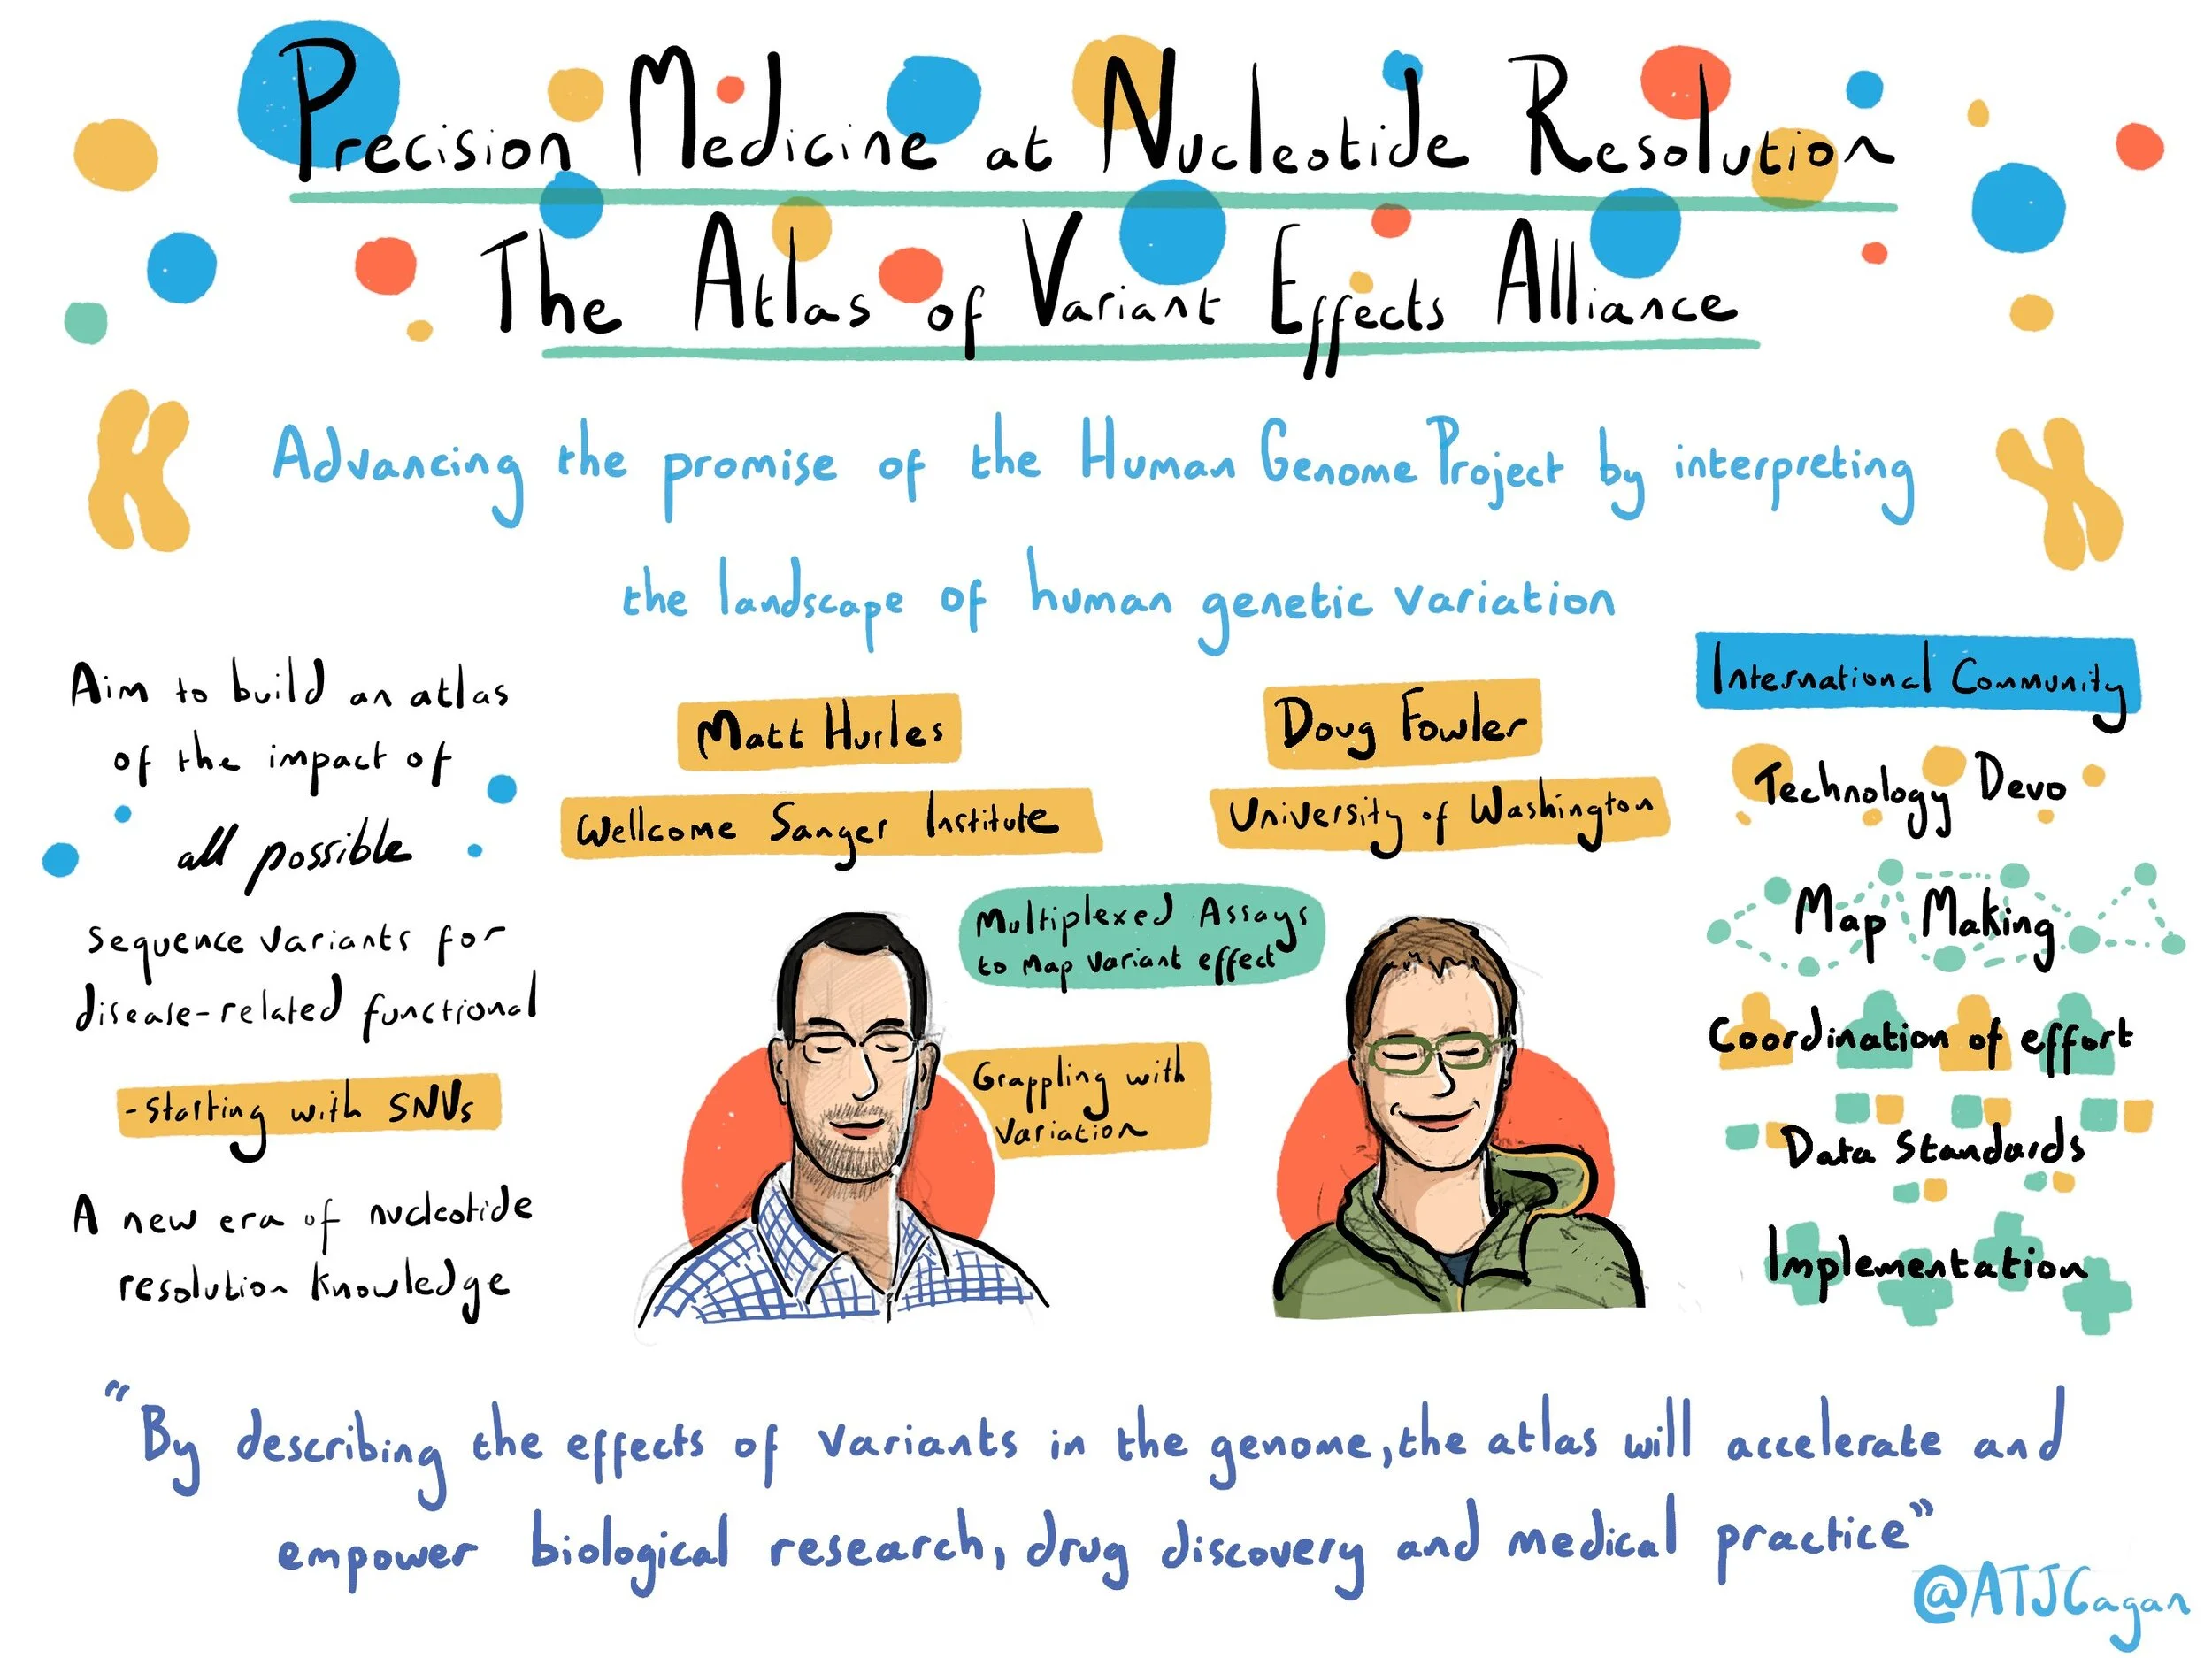 Precision Medicine at Nucleotide Resolution
The Atlas of Variant Effects Alliance
Advancing the promise of the Human Genome Project by interpreting
the landscape of human genetic variation
Aim to build an atlas
of the impact of
all possible
sequence variants for
disease-related functional
-starting with SNVs
A new era of nucleotide
resolution knowledge
Matt Hurles
Wellcome Sanger Institute
Doug Fowler
University of Washington
Multiplexed Assays
to Map variant effect
Grappling with
Variation
International Community
Technology Devo
Map Making
Coordination of effort
Data Standards
Implementation
"By describing the effects of variants in the genome, the atlas will accelerate and
empower biological research, drug discovery and medical practice"
@ATJCagan